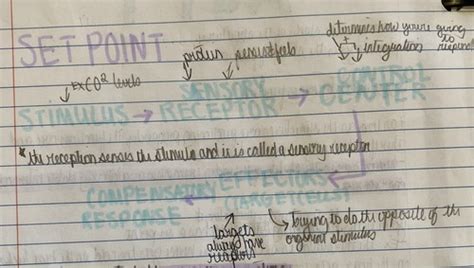 SET POINT
determines how you're going to respond
integration
Ex CO² levels
STIMULUS → SENSORY RECEPTOR → CONTROL CENTER
* the reception senses the stimula and it is called a sensory receptor
COMPENSATORY RESPONSE ← EFFECTORS (TARGET CELLS)
targets always have receptors
trying to do the opposite of the original stimulus